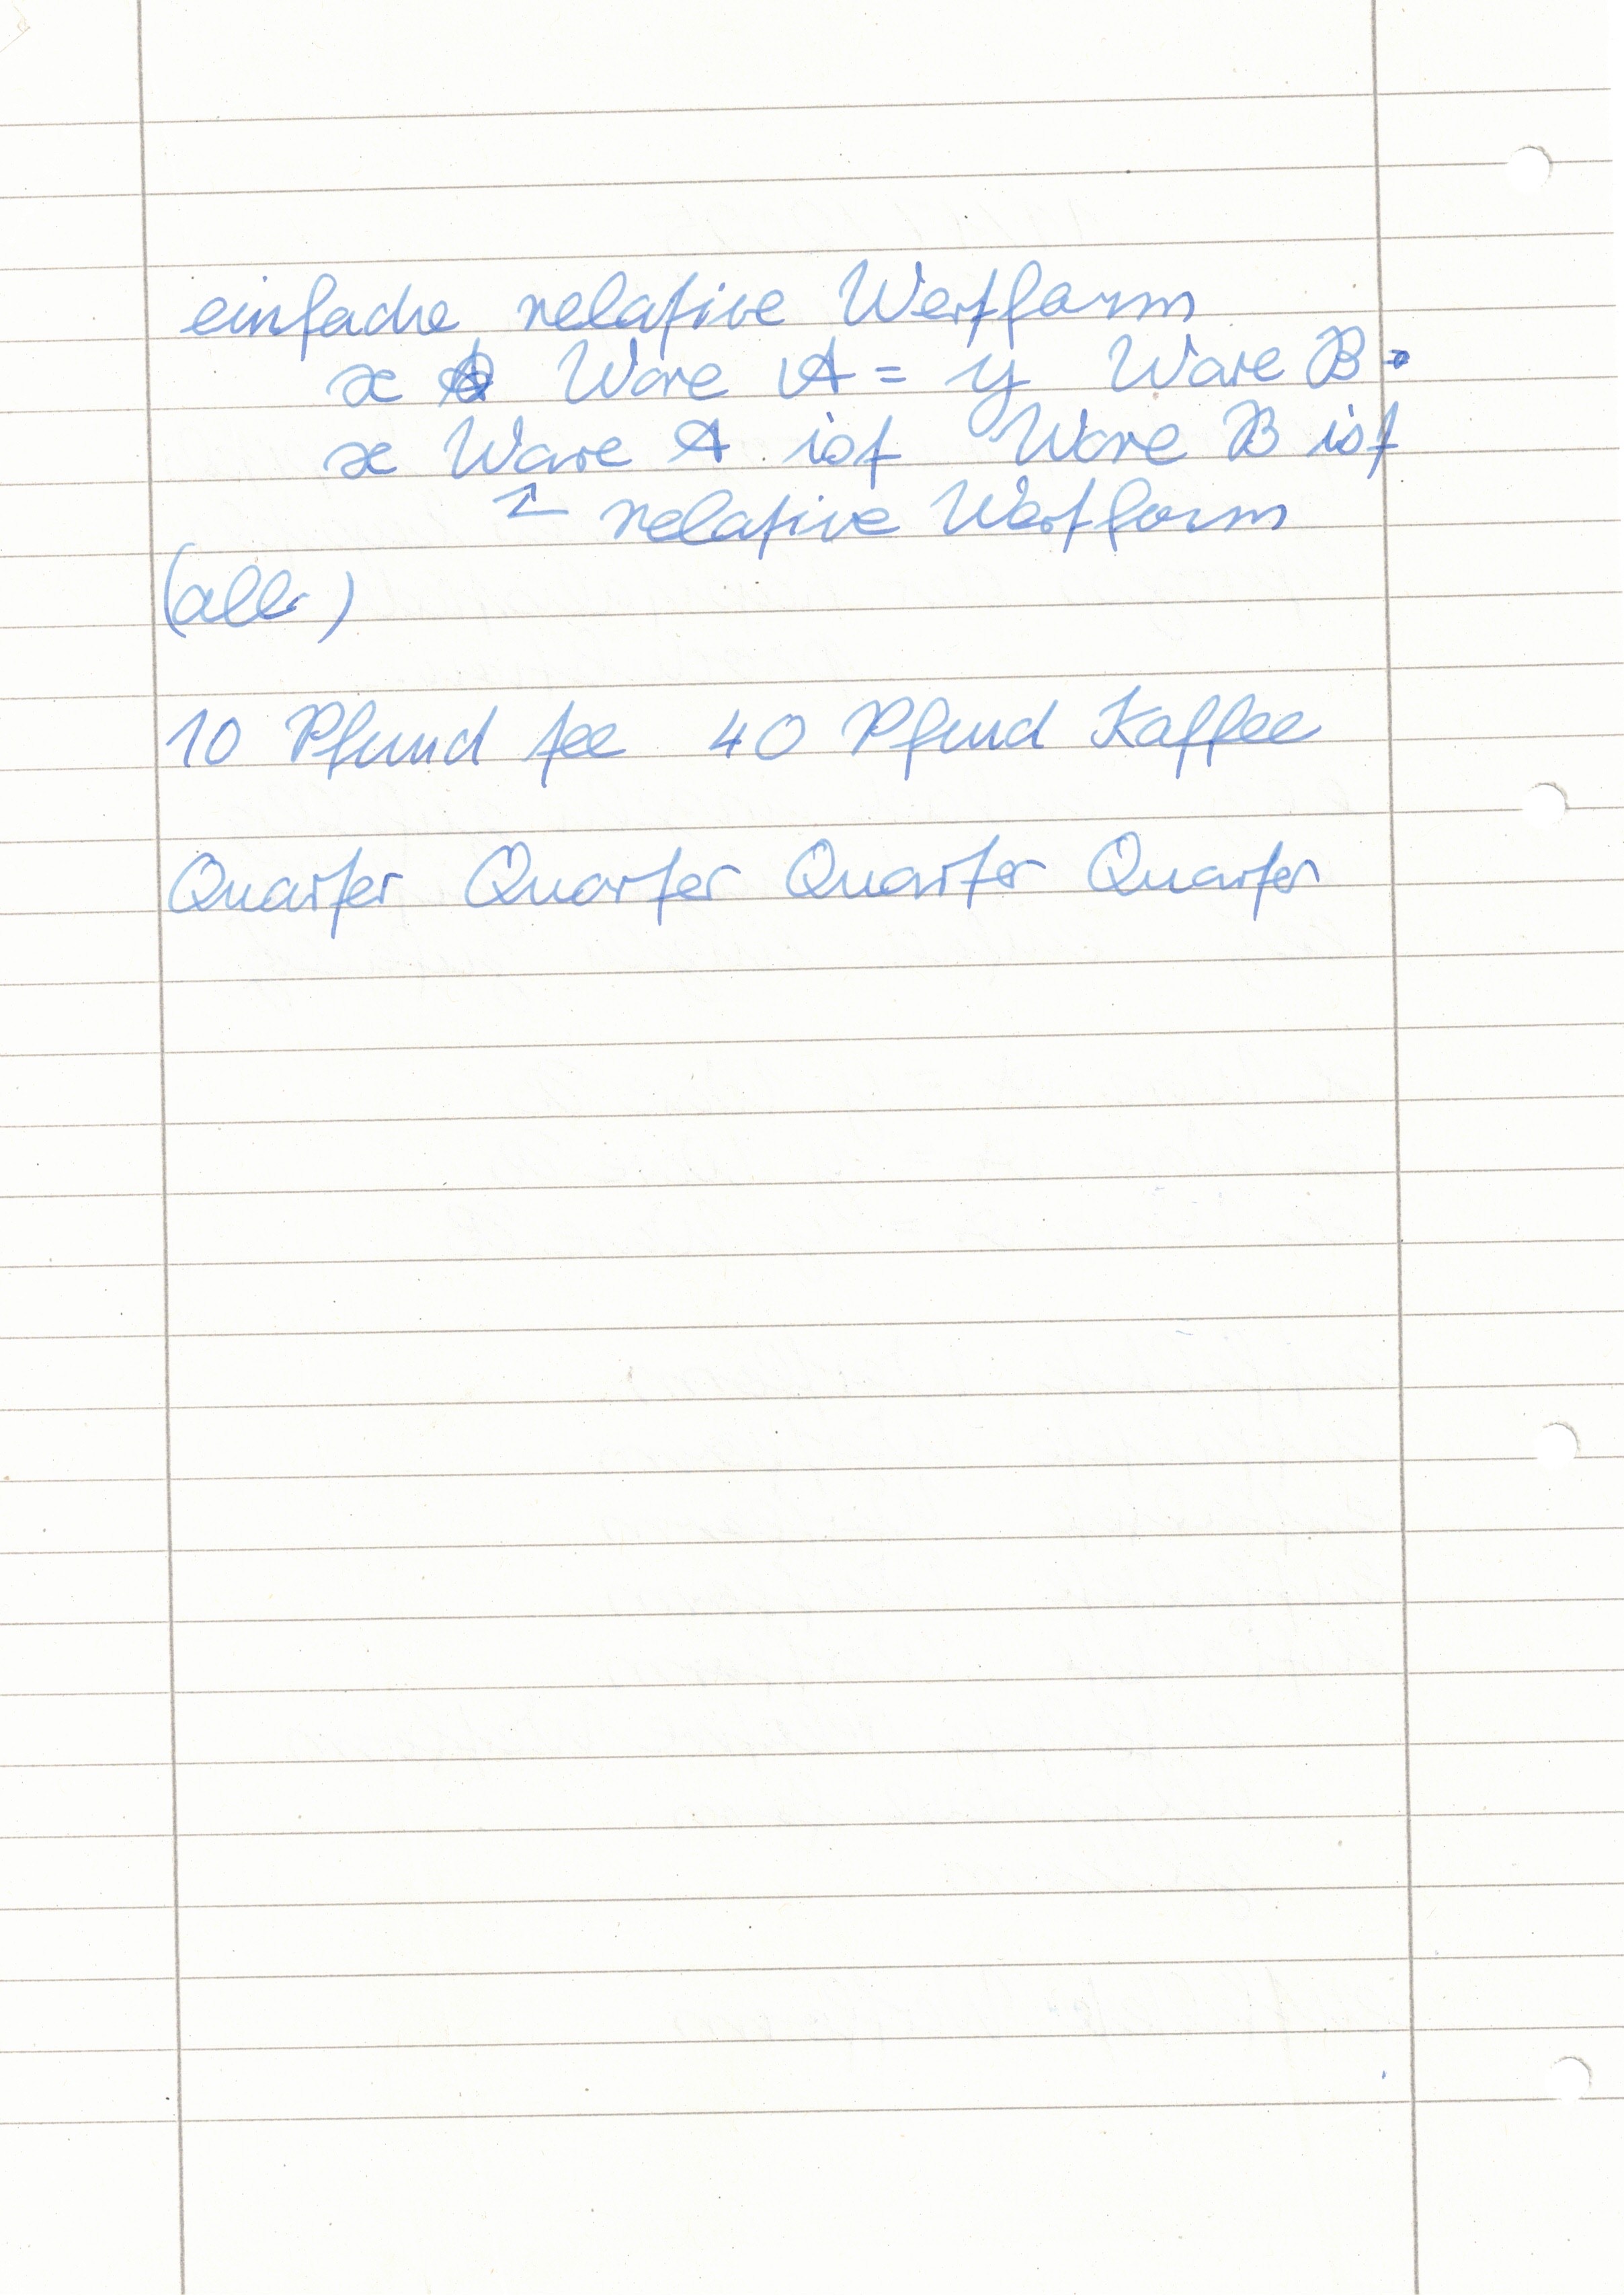 einfache relative Wertform
x Ware A = y Ware B
x Ware A ist Ware B ist
relative Wertform
(all.)
10 Pfund tee 40 Pfund Kaffee
Quarter Quarter Quarter Quarter